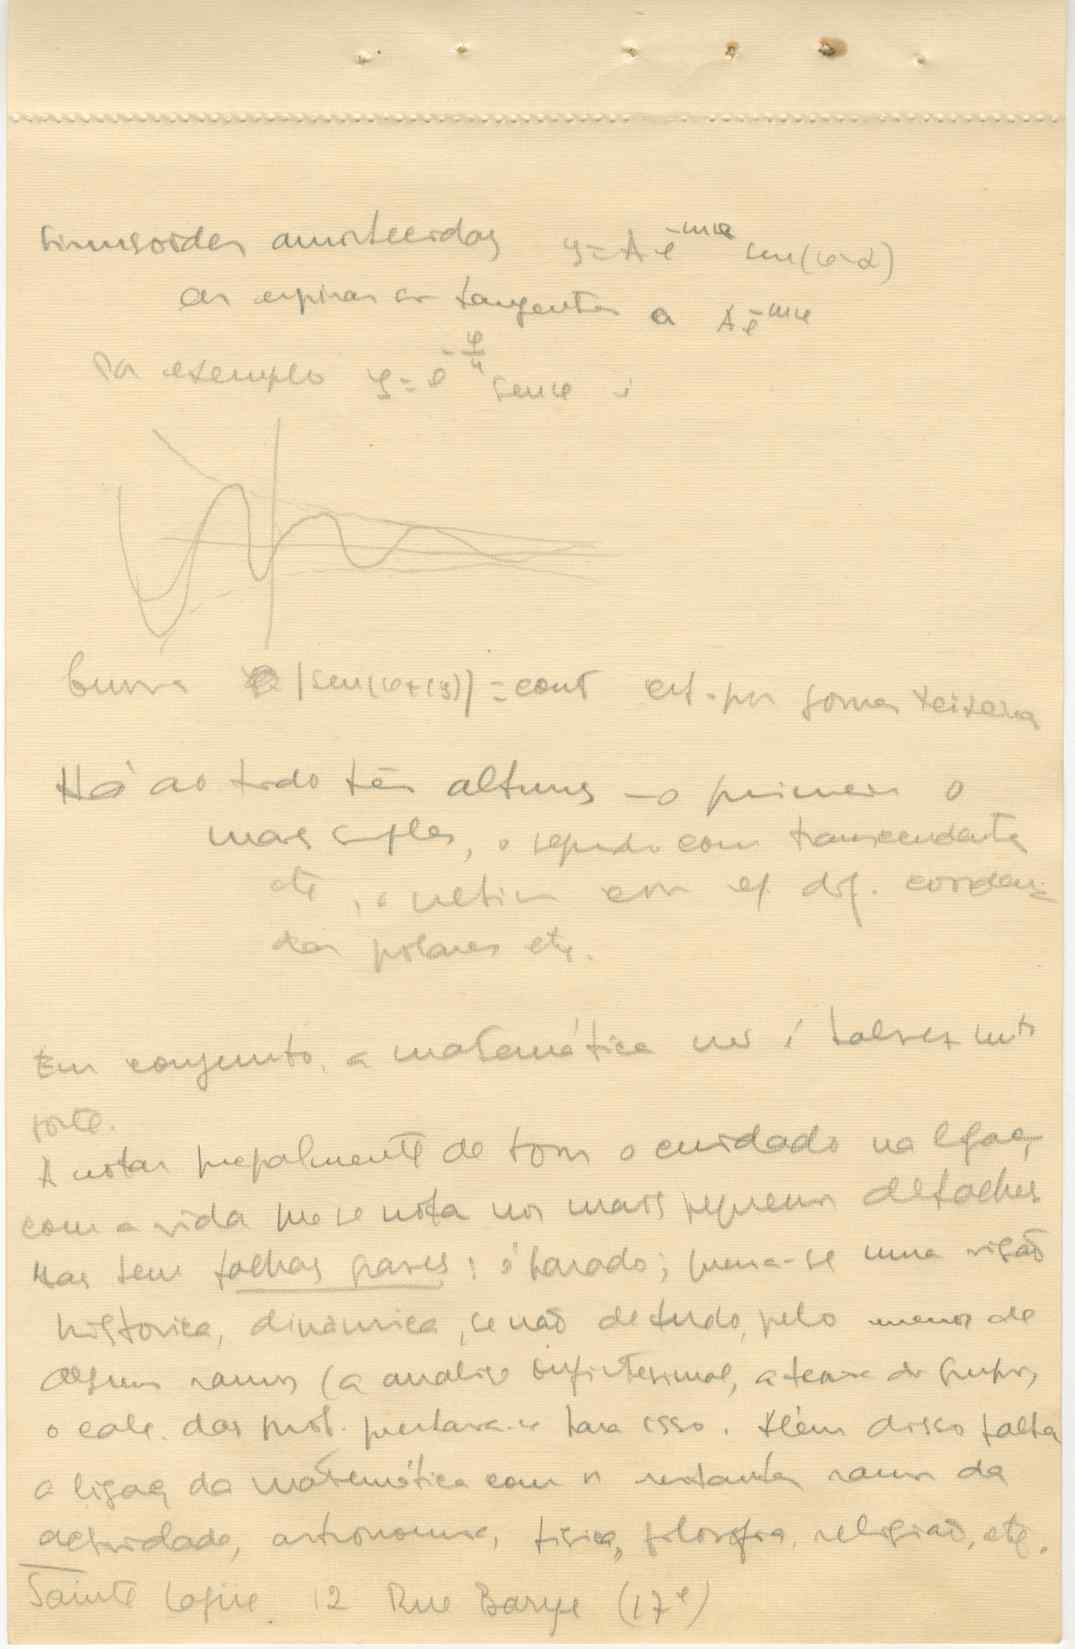 Sinusoides amortecidas y = A e^-mφ sen(φ-α)
as espiras são tangentes a A e^-mφ
Por exemplo y = e^-φ/4 sen φ é
Curva |sen(φ+(y))| = const est. por Gomes Teixeira
Há ao todo três albuns – o primeiro o
mais simples, o segundo com transcendentes
etc, o ultimo com eq. dif. coordena-
das polares etc.
Em conjunto, a matemática não é talvez mto
forte.
A notar pripalmente de bom o cuidado na ligaç
com a vida que se nota nos mais pequenos detalhes
Mas tem falhas graves: é parado; queria-se uma visão
historica, dinâmica, se não de tudo, pelo menos de
alguns ramos (a analise infinitesimal, a teoria dos grupos,
o calc. das prob. prestava-se para isso. Além disso falta
a ligaç da matemática com os restantes ramos da
actividade, astronomia, fisica, filosofia, religião, etc.
Sainte Laguë 12 Rue Barye (17e)